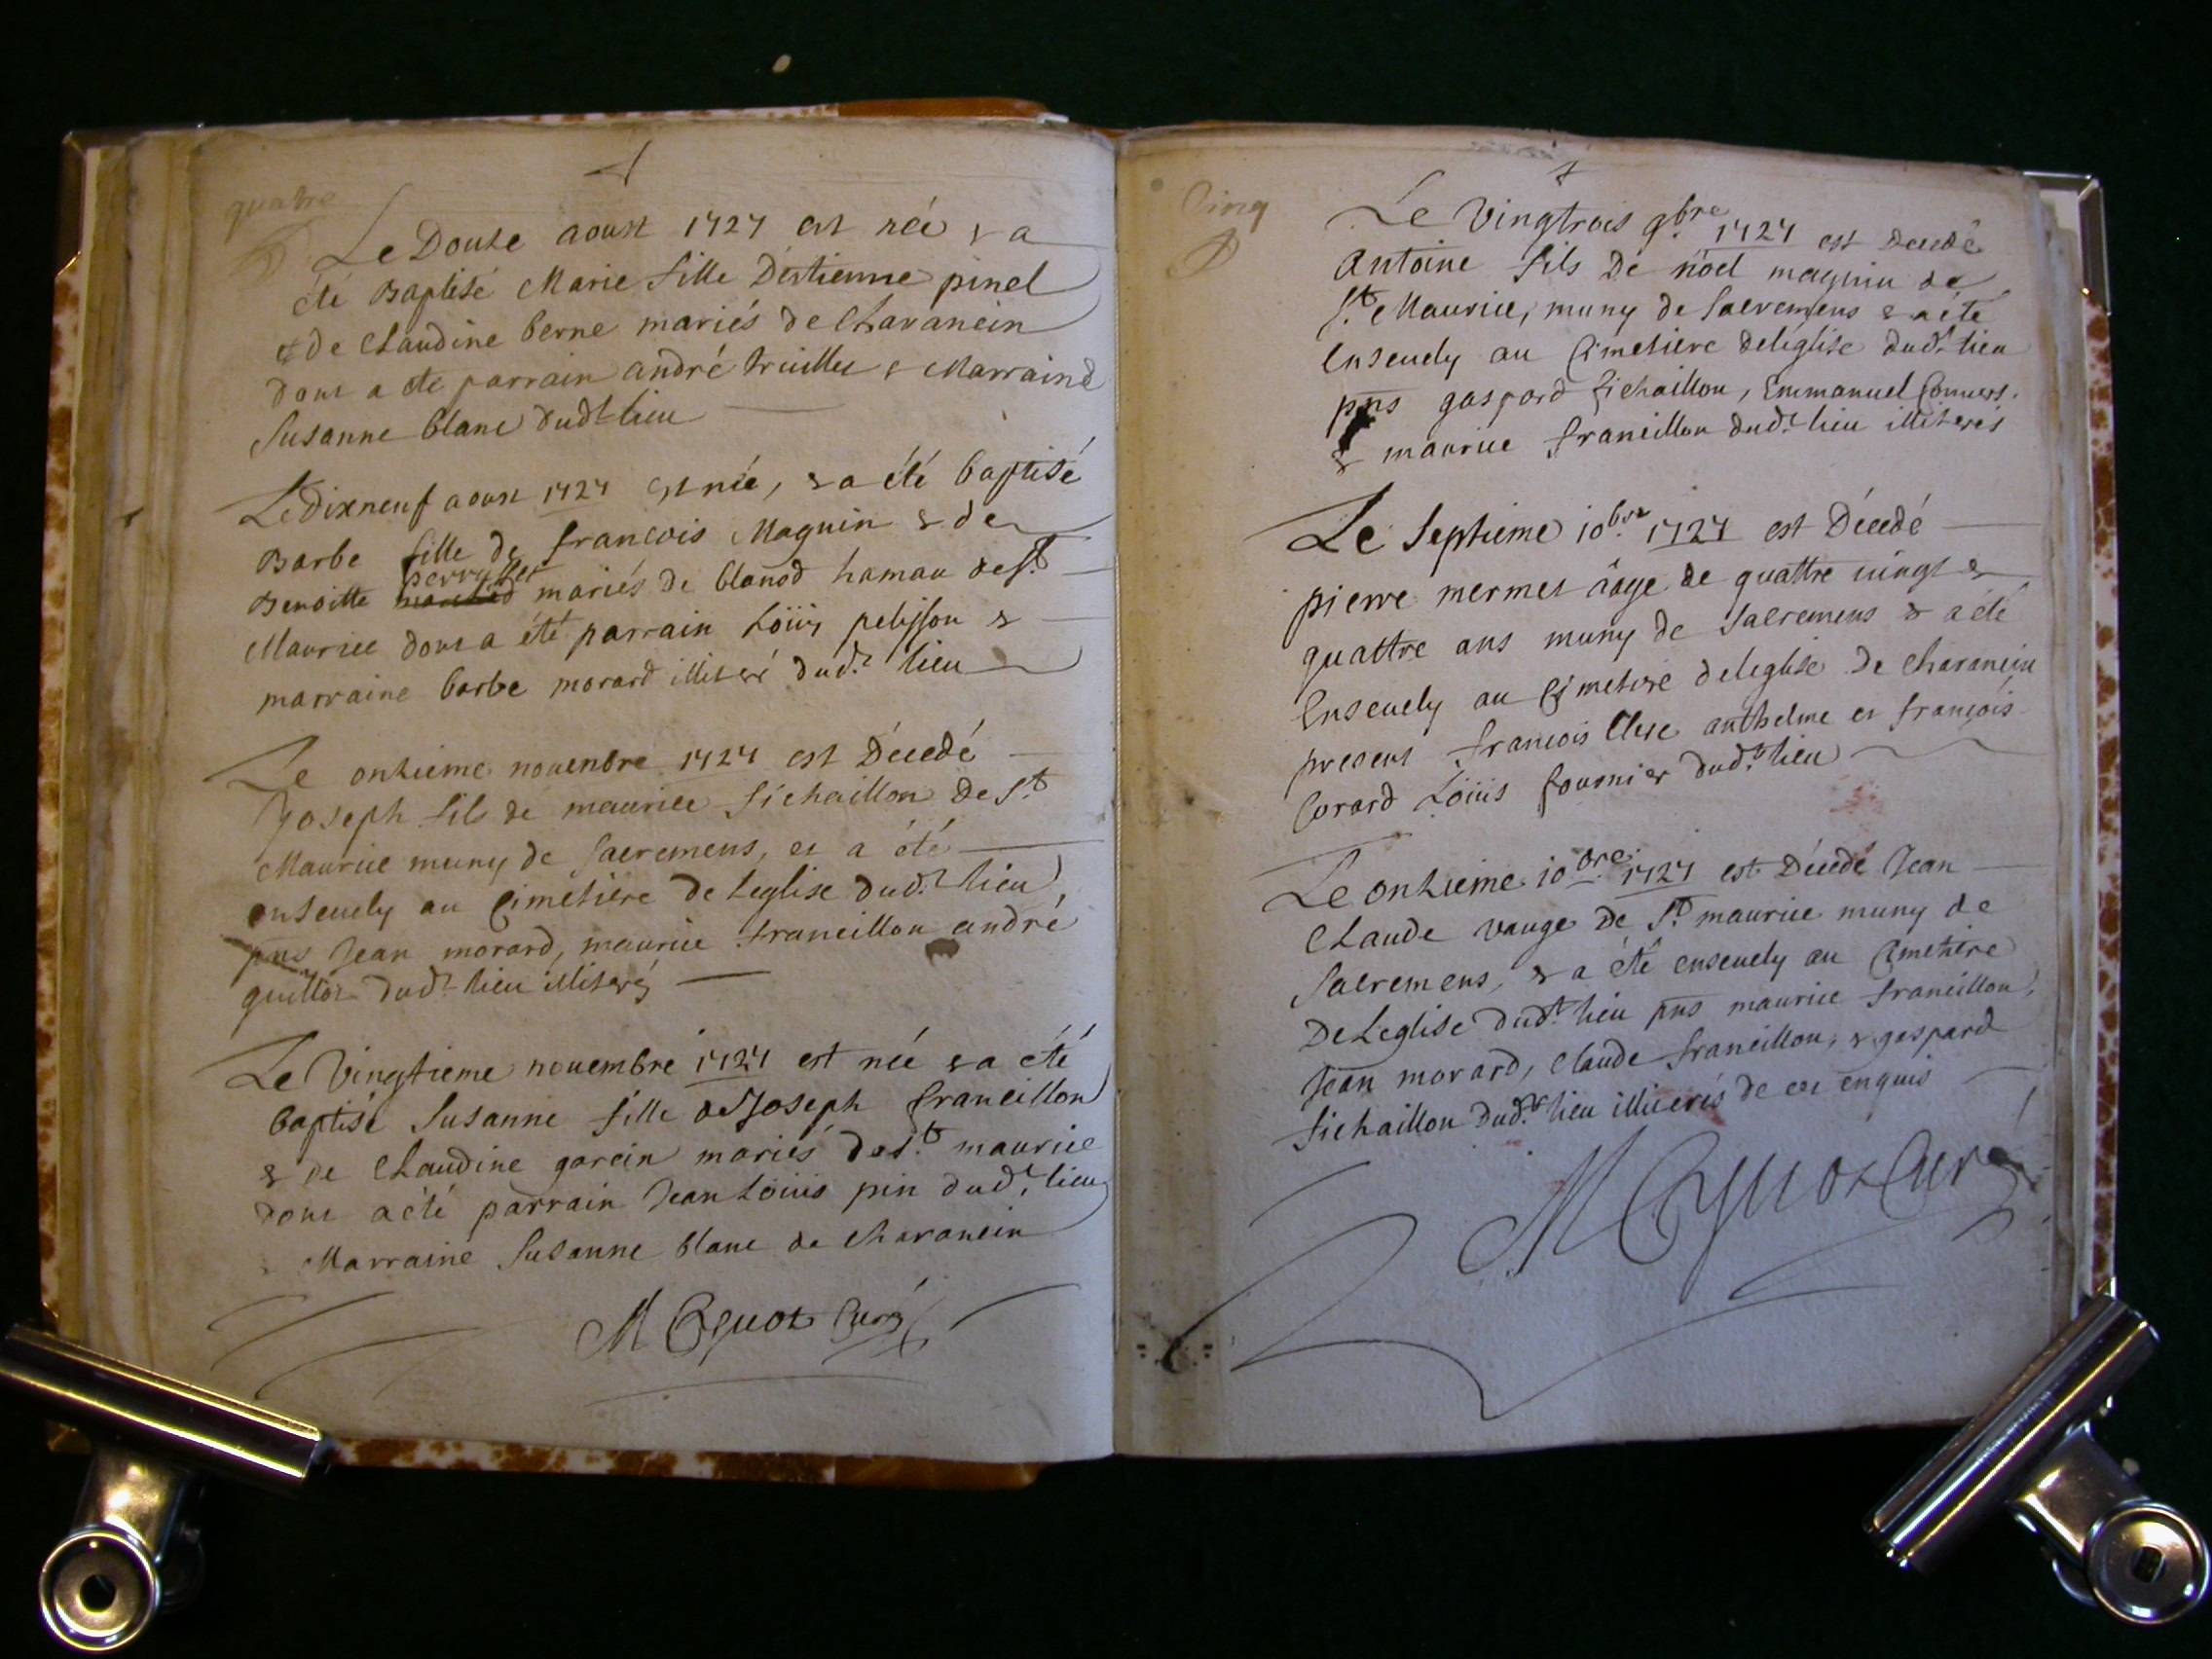 4
quatre
Le Douze aoust 1727 est née & a
été Baptisé Marie fille D'estienne pinel
& de Claudine berne mariés de Charancin
dont a ete parrain andré truillet & Marraine
Susanne blanc dudt lieu
Le dixneuf aoust 1727 est née, & a été baptisé
Barbe fille de francois Maguin & de
perruillet
Benoitte mariés de blanod hamau de St
Maurice dont a été parrain Loüis pelisson &
marraine barbe morard illiteré dudt lieu
Le onzieme nouenbre 1727 est Décedé
Joseph fils de maurice fichaillon de St
Maurice muny de sacremens, et a été
enseuely au Cimetiere de Leglise dudt lieu
pns Jean morard, maurice francillon andré
guillot dudt lieu illiterés
Le Vingtieme nouembre 1727 est née & a eté
baptisé Susanne fille de Joseph francillon
& de Claudine garcin mariés de St maurice
dont a été parrain Jean Loüis pin dudt lieu
Marraine Susanne blanc de Charancin
M Cyuot Curé
5
Cinq
Le Vingtrois 9bre 1727 est Decedé
Antoine fils De nöel maguin de
St Maurice, muny de Sacremens & a été
Enseuely au Cimetiere de léglise dudt lieu
pns gaspard fichaillon, Emmanuel Conuers.
& maurice francillon dudt lieu illiterés
Le Septieme 10bre 1727 est Décedé
pierre mermet âage de quattre uingt &
quattre ans muny de Sacremens & a été
Enseuely au Cimetiere de leglise de Charancin
present francois Clerc anthelme et françois
Corard Loüis fournier dudt lieu
Le onzieme 10bre 1727 est Décedé Jean
Claude vauge De St maurice muny de
Sacremens, & a été enseuely au Cimetiere
De Leglise dudt lieu pns maurice francillon,
Jean morard, Claude francillon, & gaspard
fichaillon dudt lieu illiterés de ce enquis
M Cyuot Curé